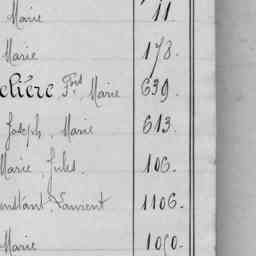 Marie 11
Marie 178.
clière Fois Marie 639.
Joseph, Marie 613.
Marie Jules. 106.
onstant, Laurent 1106.
Marie 1050.